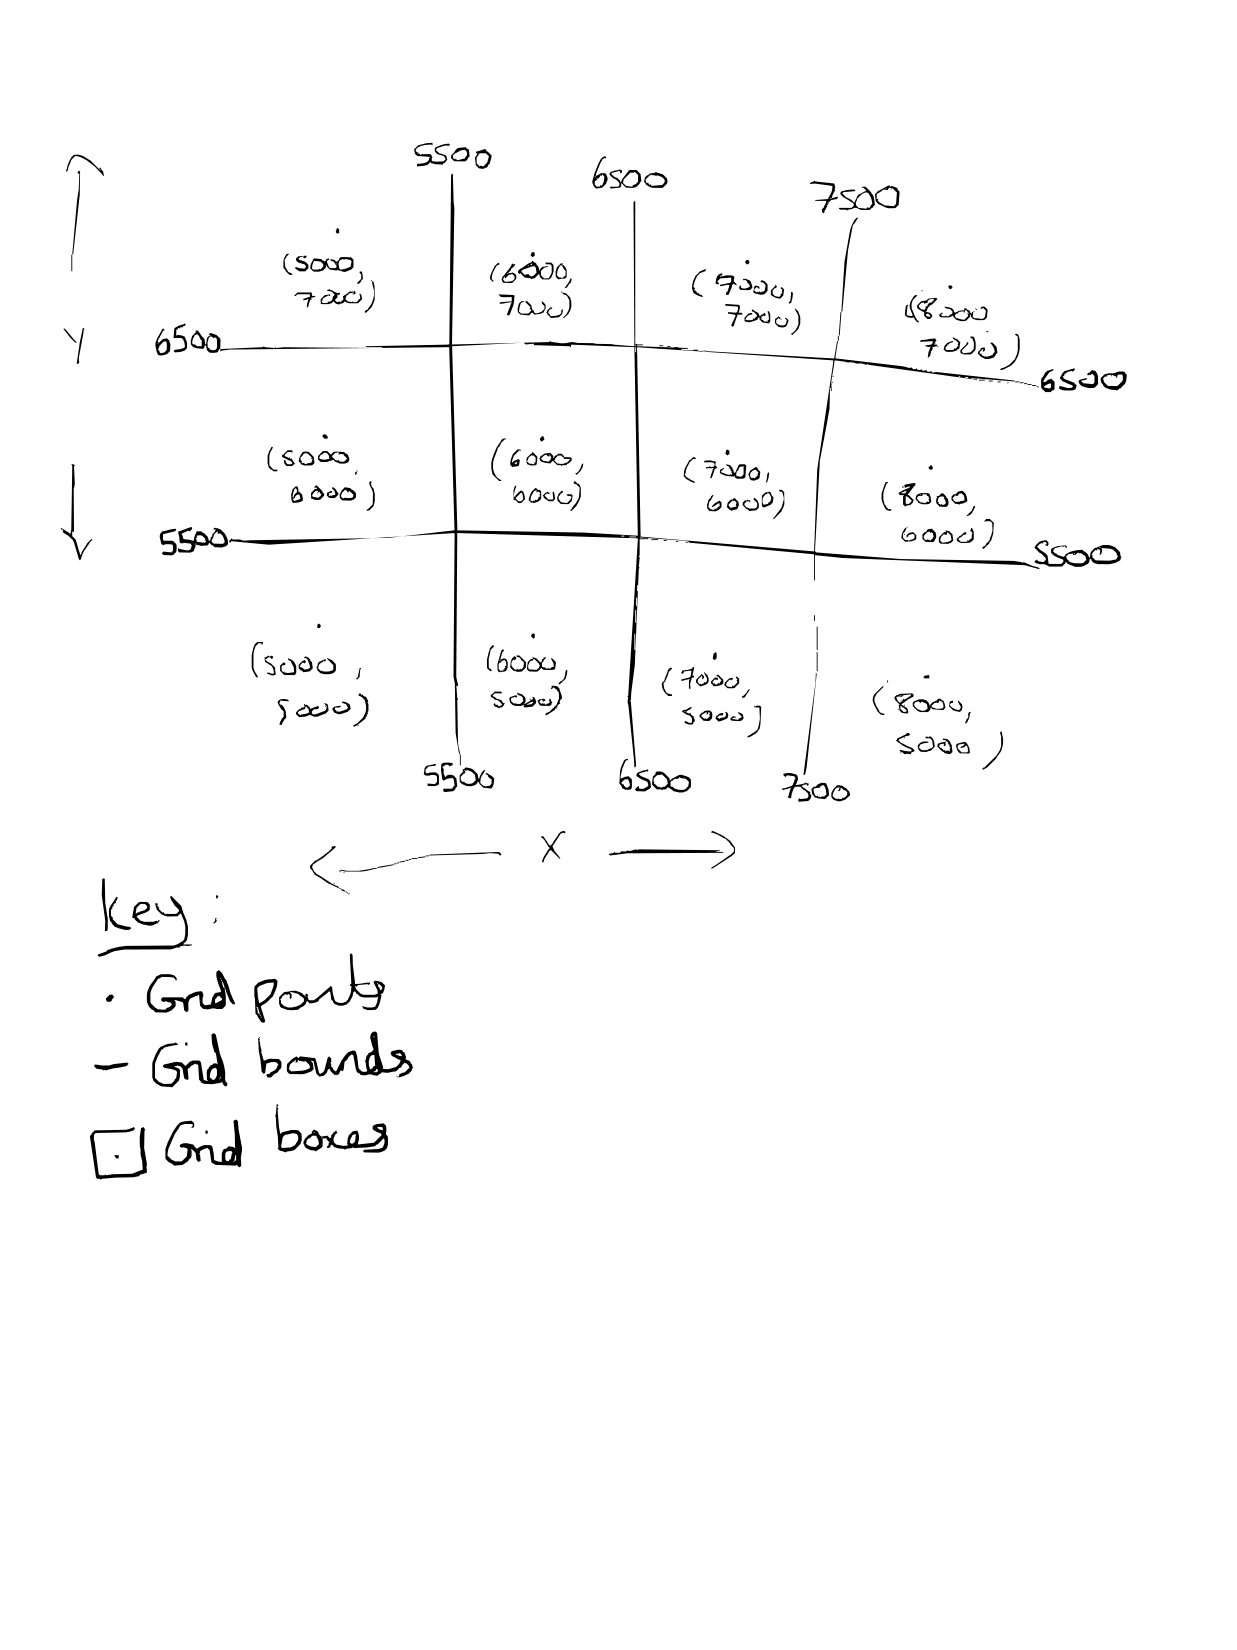 5500
6500
7500
(5000,
7000)
(6000,
7000)
(7000,
7000)
(8000
7000)
Y
6500
6500
(5000,
6000)
(6000,
6000)
(7000,
6000)
(8000,
6000)
5500
5500
(5000,
5000)
(6000,
5000)
(7000,
5000)
(8000,
5000)
5500
6500
7500
X
Key:
• Grid points
– Grid bounds
Grid boxes